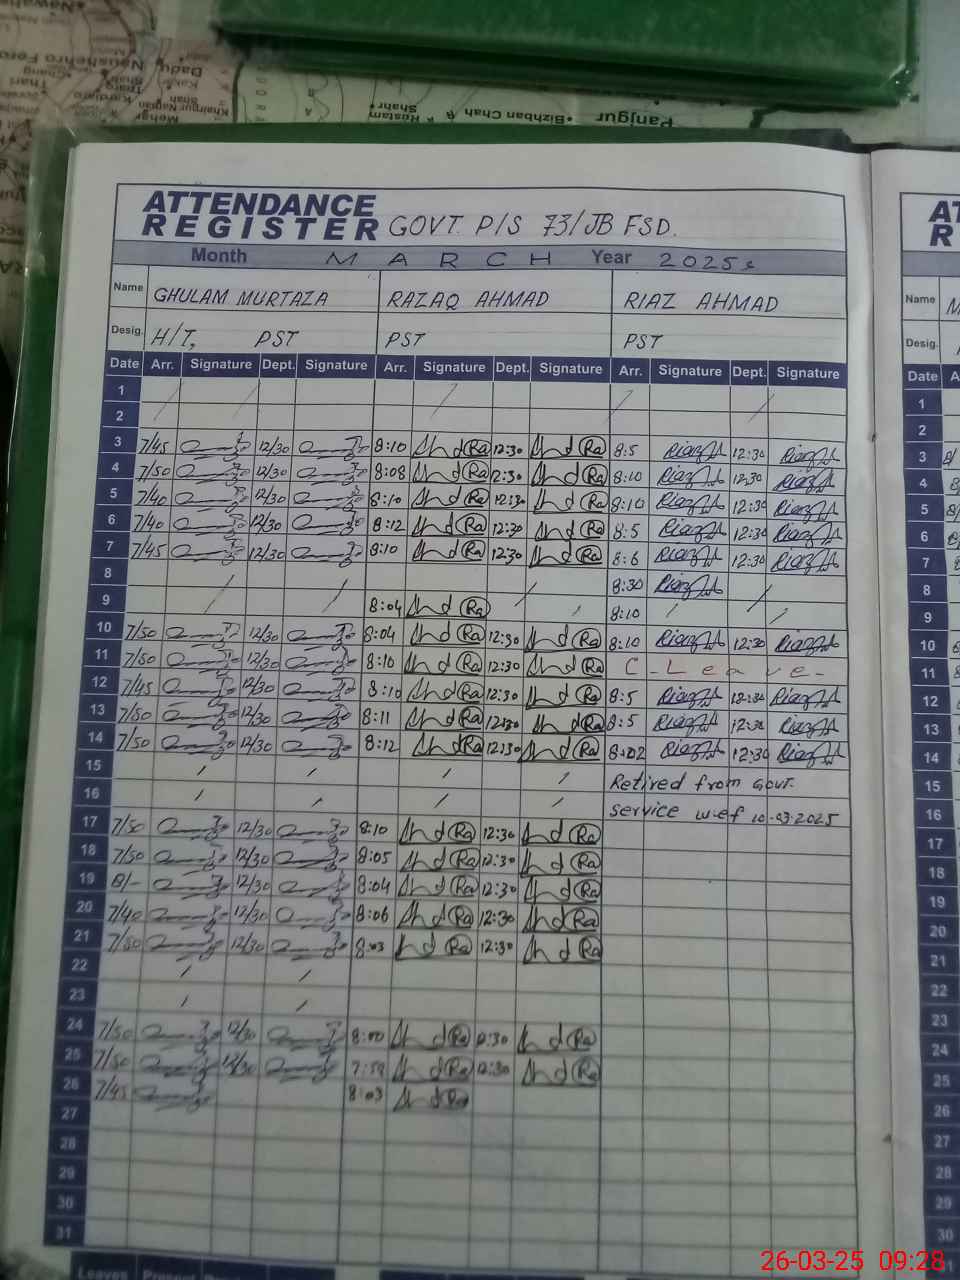 Dadu
Naushehro Feroz
Panjgur
Bizhban Chah
Rostam
Shahr
Mehar
Khairpur Nathan
Shah
ATTENDANCE
REGISTER GOVT. P/S 73/JB FSD.
Month MARCH Year 2025
Name GHULAM MURTAZA RAZAQ AHMAD RIAZ AHMAD
Desig. H/T, PST PST PST
Date Arr. Signature Dept. Signature Arr. Signature Dept. Signature Arr. Signature Dept. Signature
1
2
3 7/45 12/30 8:10 12:30 8:5 12:30
4 7/50 12/30 8:08 12:30 8:10 12:30
5 7/40 12/30 8:10 12:30 8:10 12:30
6 7/40 12/30 8:12 12:30 8:5 12:30
7 7/45 12/30 8:10 12:30 8:6 12:30
8 8:30
9 8:04 8:10
10 7/50 12/30 8:04 12:30 8:10 12:30
11 7/50 12/30 8:10 12:30 C-Leave-
12 7/45 12/30 8:10 12:30 8:5 12:30
13 7/50 12/30 8:11 12:30 8:5 12:30
14 7/50 12/30 8:12 12:30 8:02 12:30
15 Retired from Govt.
16 service w.ef 10-03-2025
17 7/50 12/30 8:10 12:30
18 7/50 12/30 8:05 12:30
19 8/- 12/30 8:04 12:30
20 7/40 12/30 8:06 12:30
21 7/50 12/30 8:03 12:30
22
23
24 7/50 12/30 8:00 12:30
25 7/50 12/30 7:58 12:30
26 7/45 8:03
27
28
29
30
31
Leaves Present
Name
Desig.
Date
1
2
3
4
5
6
7
8
9
10
11
12
13
14
15
16
17
18
19
20
21
22
23
24
25
26
27
28
29
30
26-03-25 09:28